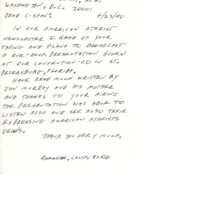 WASHINGTON, D.C. 20001
DEAR C-SPAN: 4/23/00
IN OUR AMERICAN ATHEIST
NEWSLETTER I READ OF YOUR
TAPING AND PLANS TO BROADCAST
A ONE-HOUR PRESENTATION GIVEN
AT OUR CONVENTION-20 IN ST.
PETERSBURG, FLORIDA.
HAVE READ MUCH WRITTEN BY
JON MURRAY AND HIS MOTHER
AND THANKS TO YOUR AIRING
THE PRESENTATION WAS ABLE TO
LISTEN ALSO AND SEE ALSO THEIR
EXPRESSING AMERICAN ATHEISTS
VIEWS.
THANK YOU VERY MUCH,
CALIF.